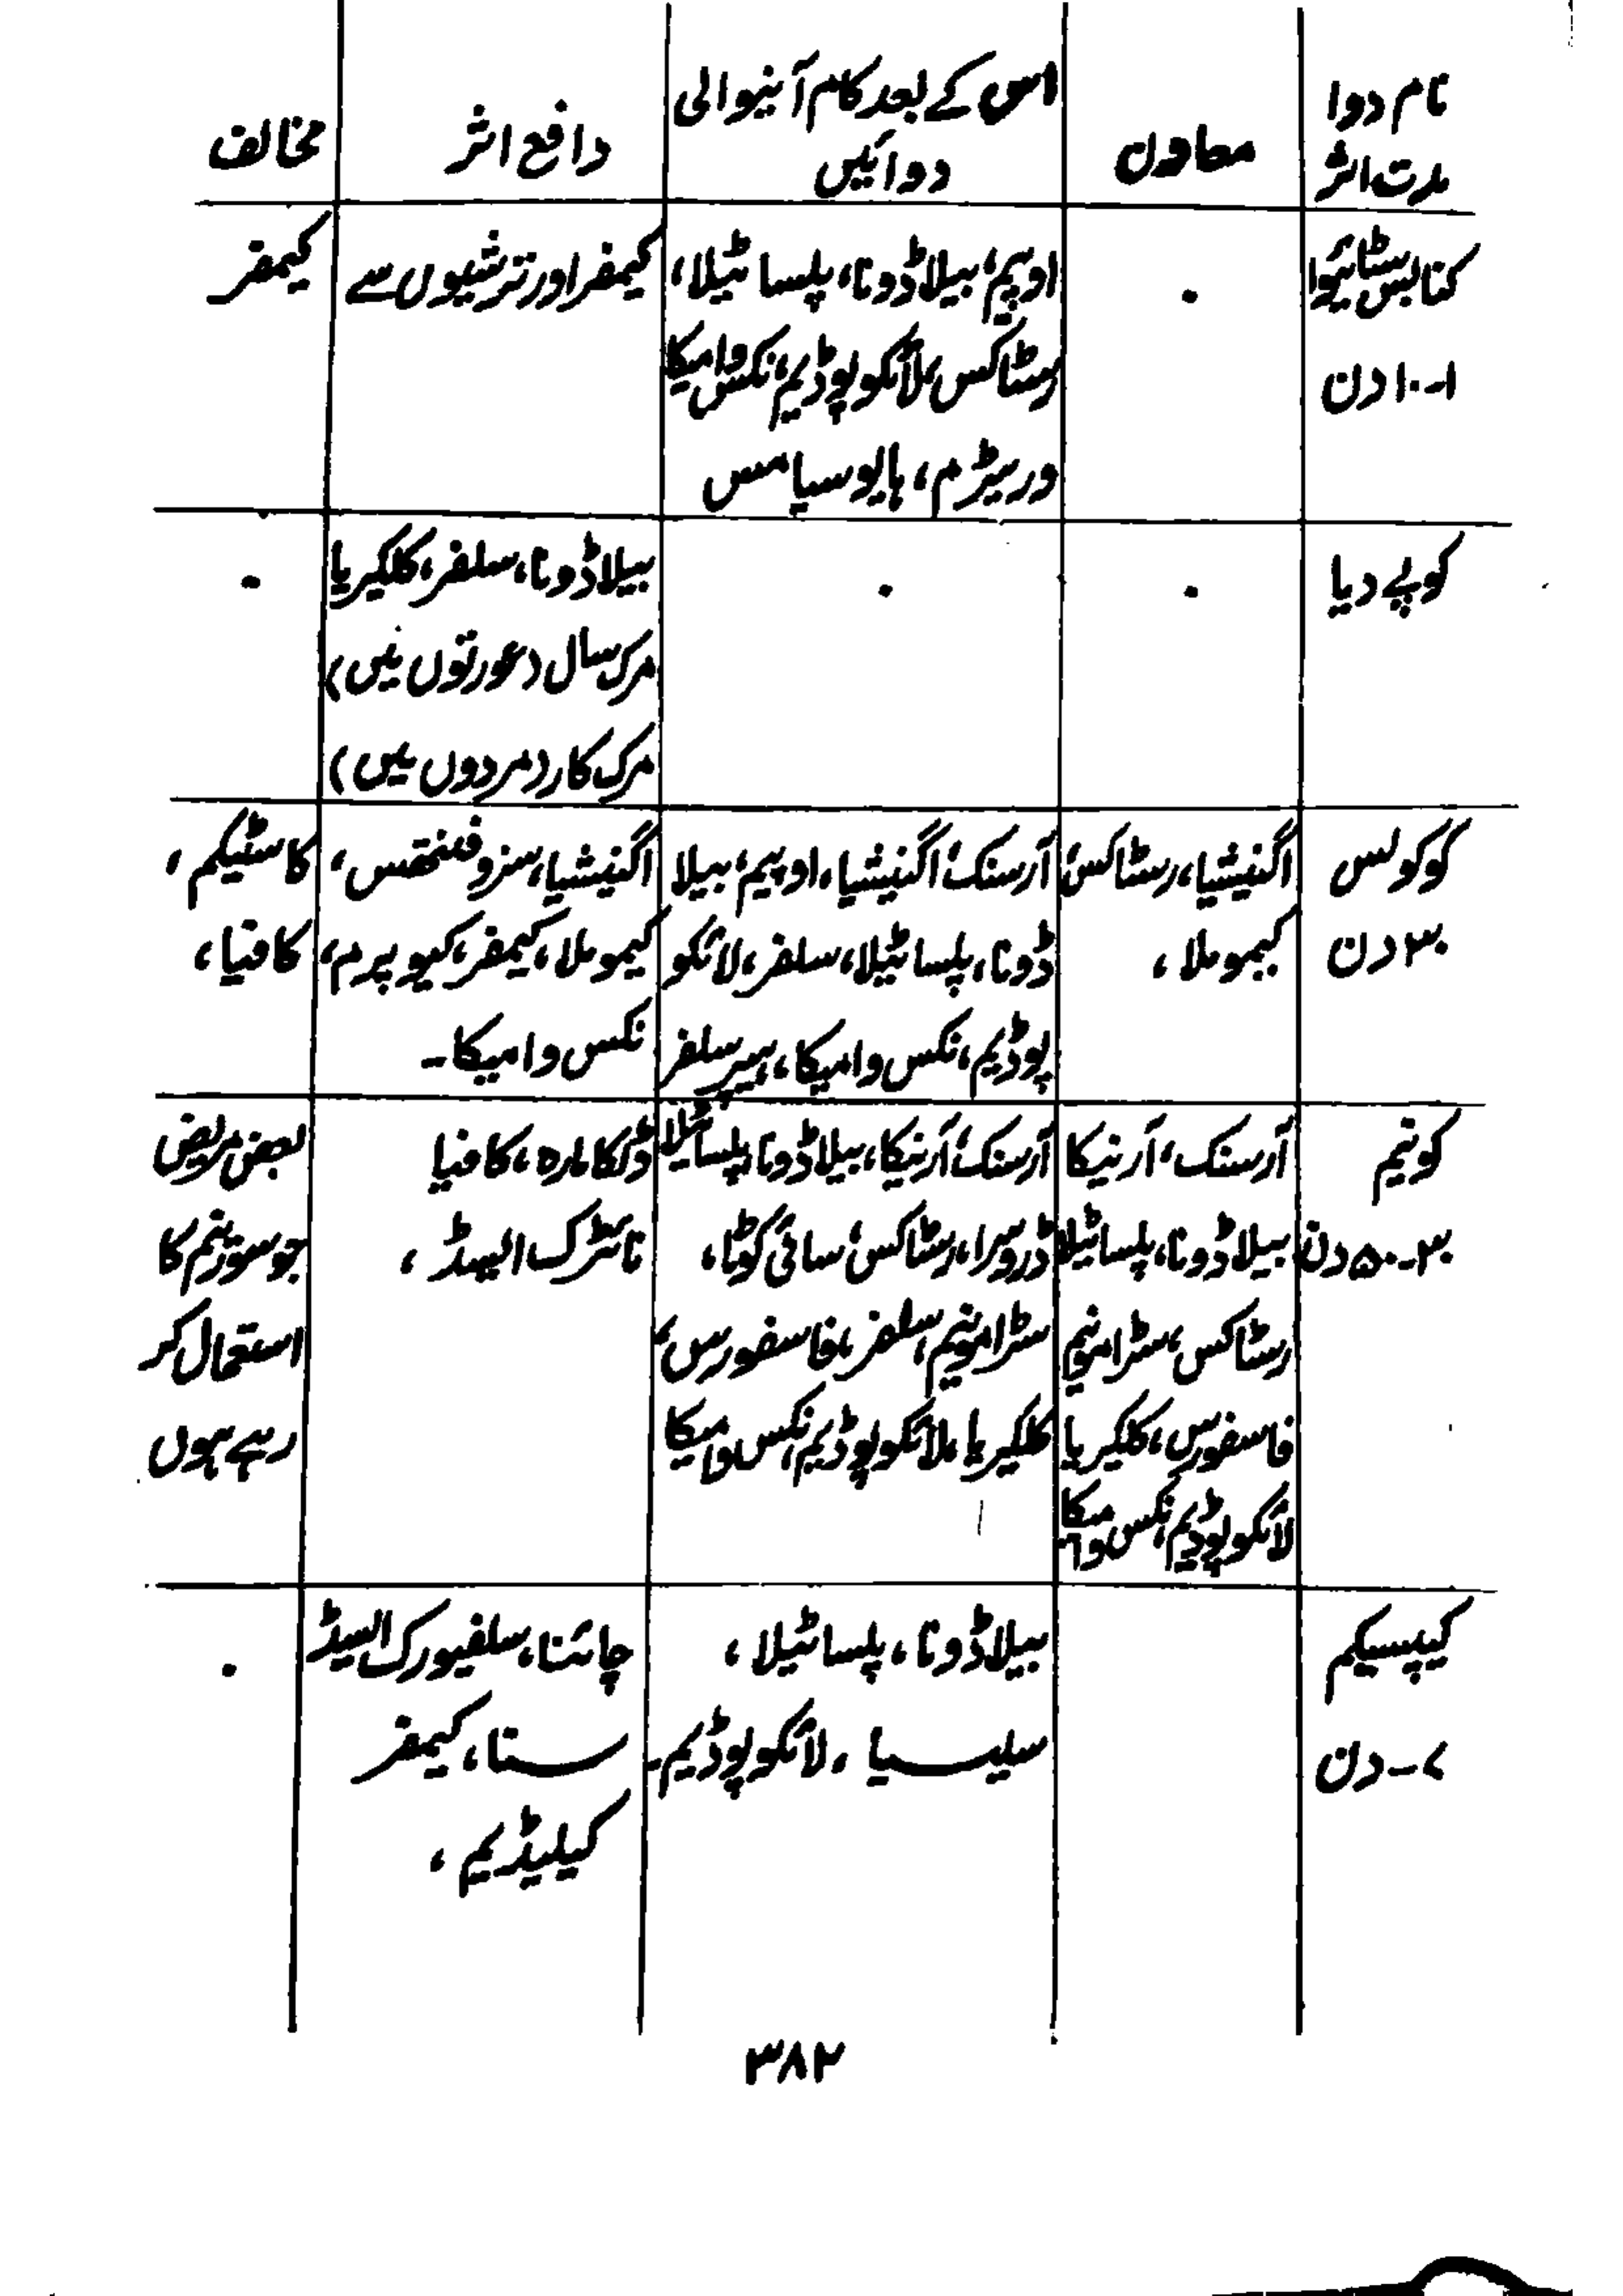 نام دوا
مدت اثر
معاون
اس کے بعد کام آنیوالی
دوائیں
دافع اثر
مخالف
کنابس سٹائیوا
۱-۱۰ دن
۰
اوپیم، بیلاڈونا، پلساٹیلا،
رسٹاکس، لائکوپوڈیم، نکس وامیکا
وریٹرم، ہایوسیامس
کیمفر اور ترشیوں سے
کیمفر
کوپے دیا
۰
۰
بیلاڈونا، سلفر، کلکیریا
مرک سال (عورتوں میں)
مرک کار (مردوں میں)
۰
کوکولس
۳۰ دن
اگنیشیا، رسٹاکس،
کیموملا،
آرسنک، اگنیشیا، اوپیم، بیلا
ڈونا، پلساٹیلا، سلفر، لائکو
پوڈیم، نکس وامیکا، ہیپر سلفر
اگنیشیا، سنزوفنتھس،
کیموملا، کیمفر، کیوپرم،
نکس وامیکا۔
کاسٹیکم،
کافیا،
کونیم
۳۰-۵۰ دن
آرسنک، آرنیکا
بیلاڈونا، پلساٹیلا
رسٹاکس، سٹرامونیم
فاسفورس، کلکیریا
لائکوپوڈیم نکس وامیکا
آرسنک، آرنیکا، بیلاڈونا، پلساٹیلا
ڈروسرا، رسٹاکس، سائی کوٹا،
سٹرامونیم، سلفر، فاسفورس،
کلکیریا، لائکوپوڈیم، نکس وامیکا
ڈلکامارہ، کافیا
نائٹرک ایسڈ،
بعض مریض
جو سورینم کا
استعمال کر
رہے ہوں
کیپسیکم
۷-دن
بیلاڈونا، پلساٹیلا،
سلیسیا، لائکوپوڈیم۔
چائنا، سلفیورک ایسڈ
سنا، کیمفر
کیلیڈیم،
۰
۳۸۲